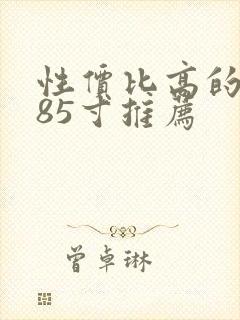 性價比高的
85寸推薦
曾卓琳